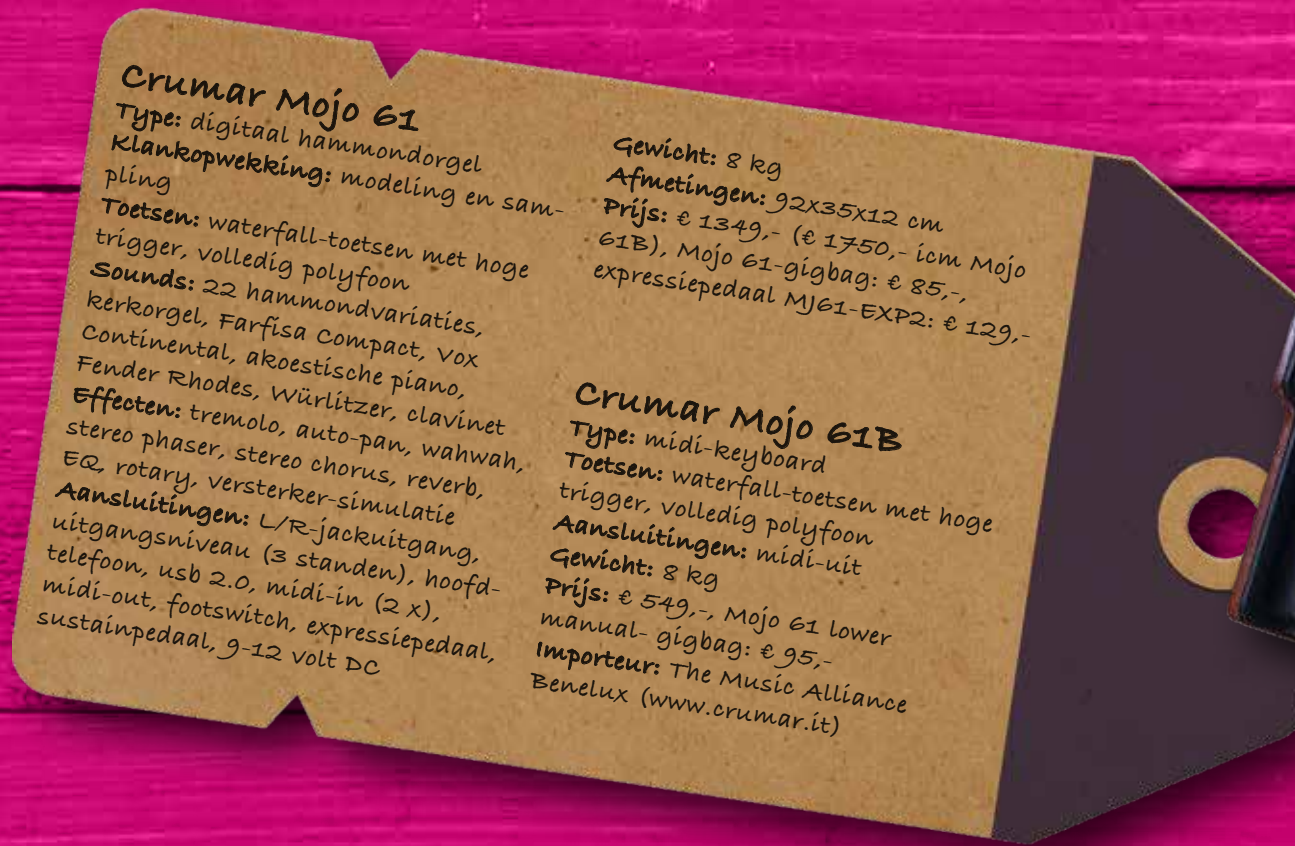 Crumar Mojo 61
Type: digitaal hammondorgel
Klankopwekking: modeling en sam-
pling
Toetsen: waterfall-toetsen met hoge
trigger, volledig polyfoon
Sounds: 22 hammondvariaties,
kerkorgel, Farfisa Compact, Vox
Continental, akoestische piano,
Fender Rhodes, Würlitzer, clavinet
Effecten: tremolo, auto-pan, wahwah,
stereo phaser, stereo chorus, reverb,
EQ, rotary, versterker-simulatie
Aansluitingen: L/R-jackuitgang,
uitgangsniveau (3 standen), hoofd-
telefoon, usb 2.0, midi-in (2 x),
midi-out, footswitch, expressiepedaal,
sustainpedaal, 9-12 volt DC
Gewicht: 8 kg
Afmetingen: 92x35x12 cm
Prijs: € 1349,- (€ 1750,- icm Mojo
61B), Mojo 61-gigbag: € 85,-,
expressiepedaal MJ61-EXP2: € 129,-
Crumar Mojo 61B
Type: midi-keyboard
Toetsen: waterfall-toetsen met hoge
trigger, volledig polyfoon
Aansluitingen: midi-uit
Gewicht: 8 kg
Prijs: € 549,-, Mojo 61 lower
manual- gigbag: € 95,-
Importeur: The Music Alliance
Benelux (www.crumar.it)